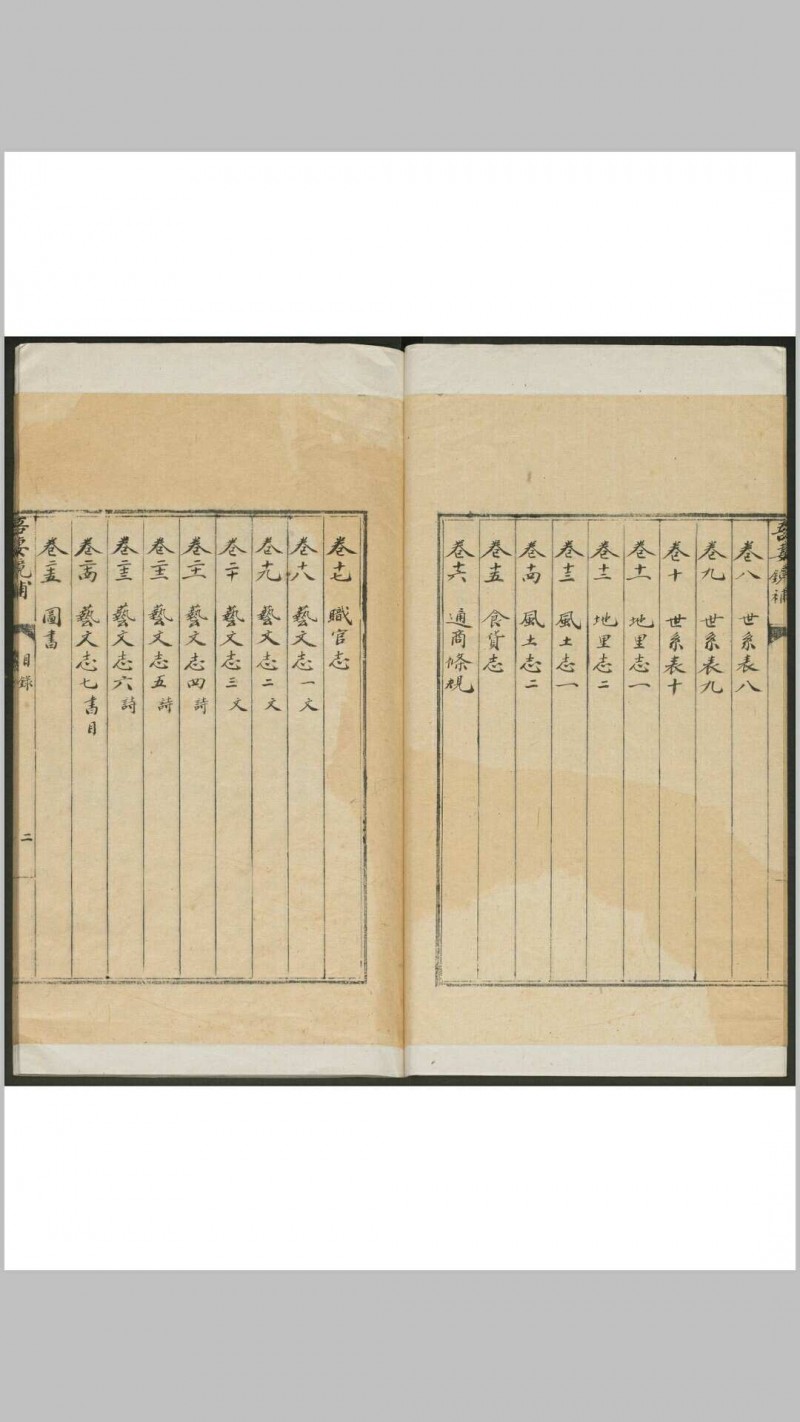 吾妻鏡補
卷八 世系表八
卷九 世系表九
卷十 世系表十
卷十一 地里志一
卷十二 地里志二
卷十三 風土志一
卷十四 風土志二
卷十五 食貨志
卷十六 通商條規
卷十七 職官志
卷十八 藝文志一文
卷十九 藝文志二文
卷二十 藝文志三文
卷二十一 藝文志四詩
卷二十二 藝文志五詩
卷二十三 藝文志六詩
卷二十四 藝文志七書目
卷二十五 圖書
吾妻鏡補 目録 二